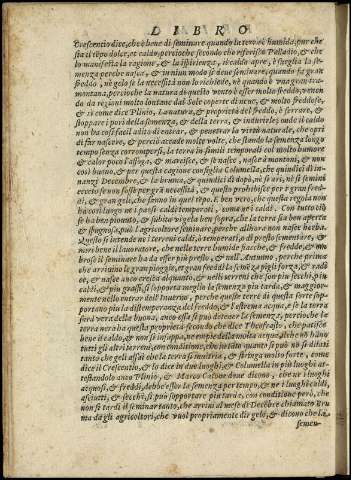 LIBRO
Crescentio dice, che è bene di seminare quando la terra è humida, pur che
sia il tẽpo dolce, et caldo, percioche secondo che riferisce Palladio, & che
lo manifesta la ragione, & la isperienza, il caldo apre, & sueglia la se-
menza perche nasca, & in niun modo si deue seminare, quando fa gran
freddo, nè gelo se la necessità non lo richiede, nè quando è vna gran tra-
montana, percioche la natura di questo vento è esser molto freddo, venen-
do da regioni molto lontane dal Sole coperte di neue, & molto fredde,
& si come dice Plinio, La natura, & proprietà del freddo, è serrare, &
stoppare i pori della semenza, & della terra, & indurirle, onde il caldo
non ha così facil adito di entrar, & penetrar la virtù naturale, che opri
di far nascere, & però accade molte volte, che stando la semenza lungo
tempo senza corrompersi, la terra in simili tempi che col molto humore,
& calor poco l'affoga, & marcisce, & se nasce, nasce a montoni, & non
così buono, & per questa cagione consiglia Columella, che quindici dì in-
nanzi Decembre, & la bruma, & quindici dì dopò, nè si ari, nè si semini
eccetto se non fosse per grã necessità, & questo prohibisse per i gran fred-
di, & gran gelo, che sanno in quel tẽpo. E ben vero, che questa regola non
ha così luogo ne i paesi caldi temperati, come ne i caldi. Con tutto ciò
se ha ben piouuto, & subito vigela ben sopra, che la terra sia ben aperte
& spugnosa, può l'agricoltore seminare, perche all'hore non nasce herba.
Questo si intende ne i terreni caldi, & temperati, se di presto sementare, &
mori bene il lauoratore, che nelle terre humide fiacche, & fredde, & om
brose il seminare ha da esser più presto, & nell'Autunno, perche prima
che arriuino le gran pioggie, & gran freddi la semẽza pigli forza, & radi
ce, & nasce anco cresciuta alquanto, & nelli terreni che son più secchi, più
caldi, & più grassi, si sopporta meglio la semenza più tarda, & maggior-
mente nello entrar dell'Inuerno, perche queste terre di questa sorte sop-
portano più la distemperanza del freddo, & l'estrema acqua, e se la terra
sarà vera della buona, anco essa si può detraer la semenza, percioche la
terra nera ha questa proprietà secondo che dice Theofrasto, che patisce
bene il caldo, & non si infappa, ne empie della molta acqua, il che nõ hãno
tutti gli altri terreni, con conditioni, che inuito quanto si può nõ si dilati
tanto che geli assai che la terra si nutrisca, & stringa molto forte, come
dice il Crescentio, & lo dice in due luoghi, & Columella in più luoghi at-
testandolo anco Plinio, & Marco Catone doue dicono, che ne i luoghi
acquosi, & freddi, debbe esser la semenza per tempo, & ne i luoghi caldi,
asciutti, & secchi, si può sopportare più tardo, con conditione però, che
non sì tardi il seminar tanto, che arriui al mese di Decẽbre chiamato Bru
ma dagli agricoltori, che vuol propriamente dir gelo, & dicono che la
semen-